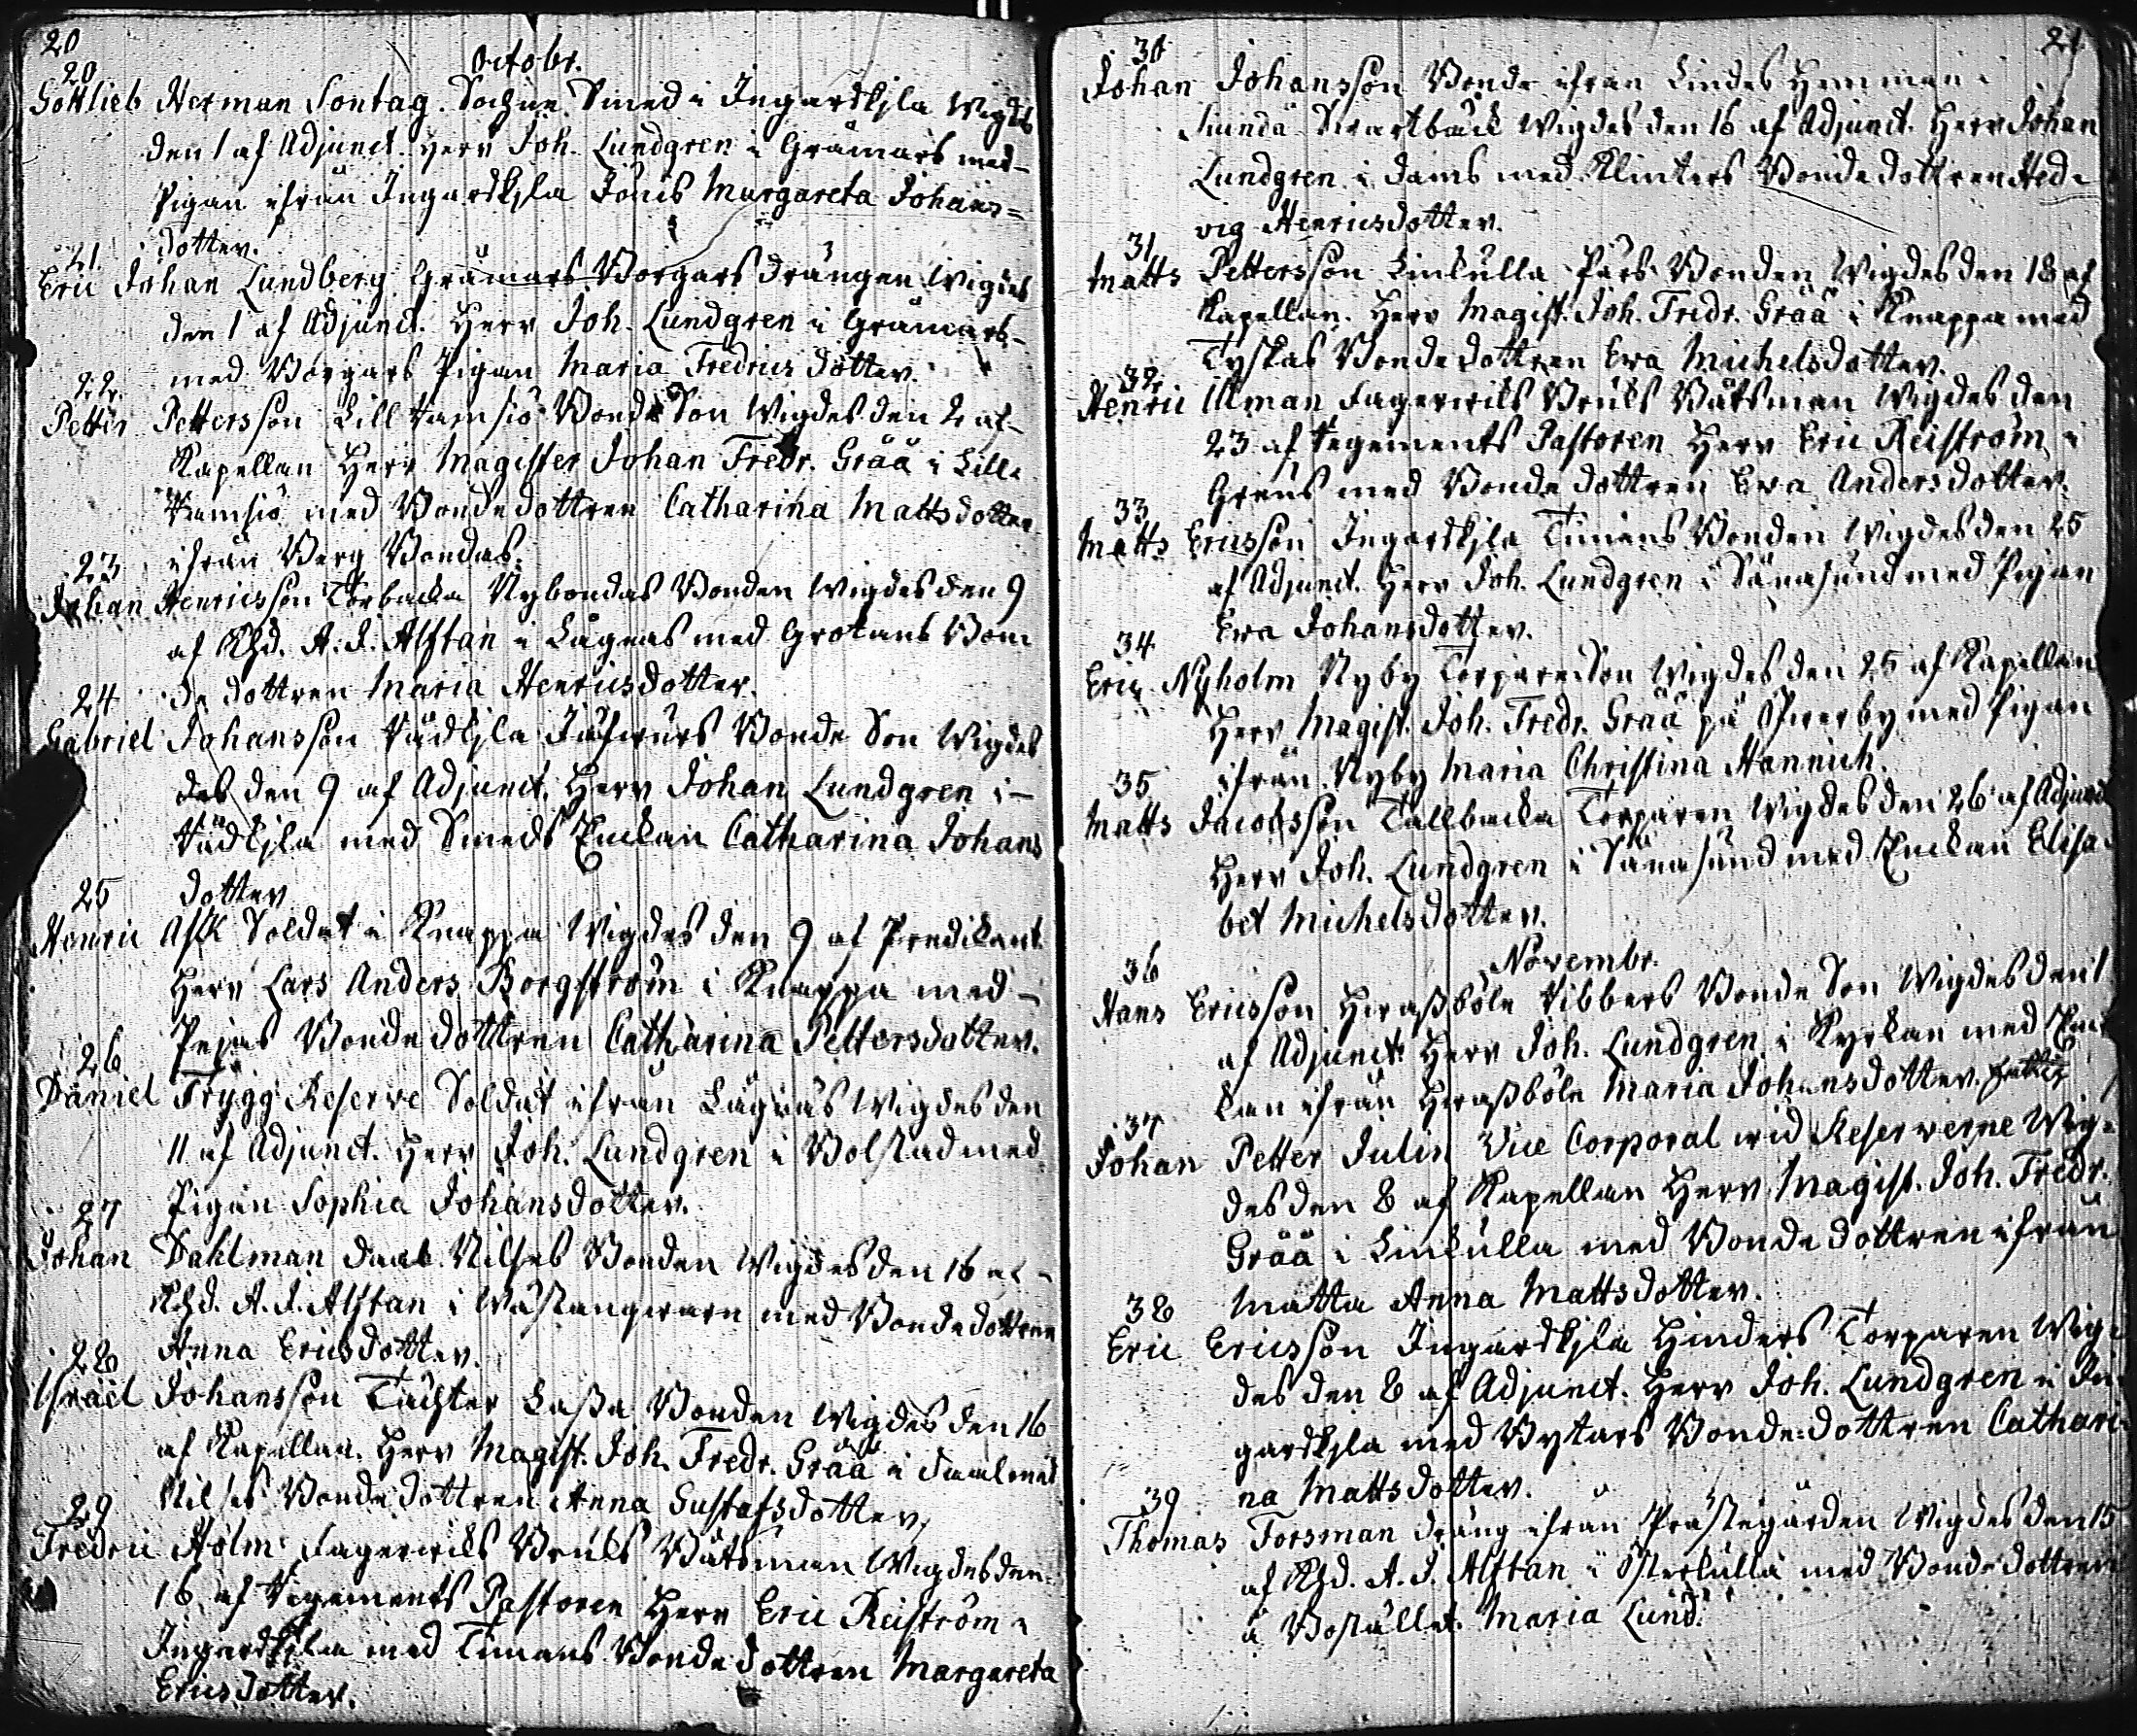 20
Octobr.
20
Gottlieb Herman Sontag. Sochne Smed i Ingardskyla Wigdes
den 1 af Adjunct. Herr Joh. Lundgren i Gråmars med
Pigan ifrån Ingardskyla Jönis Margareta Johans=
dotter.
21.
Eric Johan Lundberg Gråmars Borgars Drängen Wigdes
den 1 af Adjunct. Herr Joh. Lundgren i Gråmars
med Borgars Pigan Maria Fredricsdotter.
22.
Petter Pettersson Lill Ramsiö Bonde Son Wigdes den 2 af
Kapellan Herr Magister Johan Fredr. Gråå i Lill
Ramsiö med Bondedottren Catharina Mattsdotter
ifrån Berg Bondas.
23
Johan Henricsson Torbacka Nybondas Bonden Wigdes den 9
af Khd. A. J. Alftan i Lågnäs med Grotans Bon
de dottren Maria Henricsdotter.
24
Gabriel Johansson Rådkyla Bonde Son Wigdes
des den 9 af Adjunct. Herr Johan Lundgren i
Rådkyla med Smeds Enckan Catharina Johans
dotter
25
Henric Ask Soldat i Knappa Wigdes den 9 af Predikant.
Herr Lars Anders Borgström i Knappa med
Pejas Bondedottren Catharina Pettersdotter.
26
Daniel Trygg Reserve Soldat ifrån Lågnäs Wigdes den
11 af Adjunct. Herr Joh. Lundgren i Bolstad med
Pigan Sophia Johansdotter.
27
Johan Dahlman Daal Nilses Bonden Wigdes den 16 af
Khd. A. J. Alftan i Wästangwarn med Bondedottren
Anna Ericsdotter.
28
Israel Johansson Täckter Lassa Bonden Wigdes den 16
af Kapellan. Herr Magist. Joh. Fredr. Gråå i Daal med
Nilses Bondedottren Anna Gustafsdotter.
29
Fredric Holm Fagerwiks Bruks Båtsman Wigdes den
16 af Regements Pastoren Herr Eric Reiström i
Ingardskyla med Timans Bondedottren Margareta
Ericsdotter.
21
30
Johan Johansson Bonde ifrån Lindes Hemman i
Siundå Swartbäck Wigdes den 16 af Adjunct. Herr Johan
Lundgren i Dams med Klinters Bondedottren Hed-
vig Henricsdotter.
31
Matts Pettersson Linkulla Pärs Bonden Wigdes den 18 af
Kapellan. Herr Magist. Joh. Fredr. Gråå i Knappa med
Tyskas Bondedottren Ewa Michelsdotter.
32
Henric Ulman Fagerwiks Bruks Båtsman Wigdes den
23 af Regements Pastoren Herr Eric Reiström i
Grens med Bondedottren Ewa Andersdotter.
33
Matts Ericsson Ingardskyla Timans Bonden Wigdes den 25
af Adjunct. Herr Joh. Lundgren i Sånasund med Pigan
Ewa Johansdotter.
34
Eric Nyholm Nyby Torpare Son Wigdes den 25 af Kapellan
Herr Magist. Joh. Fredr. Gråå på Öfwerby med Pigan
ifrån Nyby Maria Christina Hannich.
35
Matts Jacobsson Tallbacka Torparen Wigdes den 26 af Adjunct
Herr Joh. Lundgren i Sånasund med Enckan Elisa-
bet Michelsdotter.
Novembr.
36
Hans Ericsson Heraßböle Ribbers Bonde Son Wigdes den 1
af Adjunct. Herr Joh. Lundgren i Kyrkan med Enc
kan ifrån Heraßböle Maria Johansdotter. fattig
37
Johan Petter Julin Vice Corporal wid Reserverne Wig-
des den 8 af Kapellan Herr Magist. Joh. Fredr.
Gråå i Linkulla med Bondedottren ifrån
Matta Anna Mattsdotter.
38
Eric Ericsson Ingardskyla Hinders Torparen Wig-
des den 8 af Adjunct. Herr Joh. Lundgren i In
gardskyla med Bytars Bonde=dottren Cathari
na Mattsdotter.
39
Thomas Forsman Dräng ifrån Prästegården Wigdes den 15
af Khd. A. J. Alftan i Österkulla med Bondedottren
å Bostället Maria Lund.